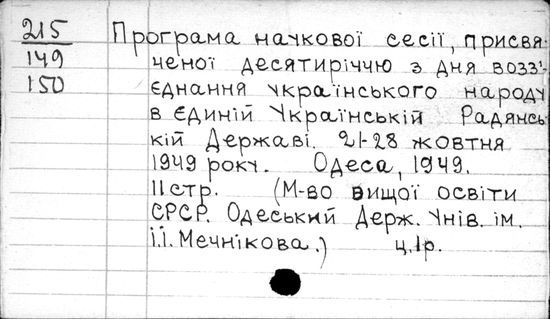 215 Програма наукової сесії, присвя-
149 ченої десятиріччю з дня возз'-
150 єднання українського народу
в єдиній Українській Радянсь-
кій Державі. 21-28 жовтня
1949 року. Одеса, 1949.
11 стр. (М-во вищої освіти
СРСР. Одеський Держ. Унів. ім.
І.І. Мечнікова.) ц. 1р.